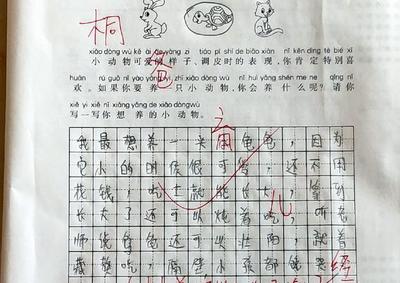 桐
xiǎo dòng wù kě ài de yàng zi tiáo pí shí de biǎo xiàn nǐ kěn dìng tè bié xǐ
小动物可爱的样子、调皮时的表现,你肯定特别喜
huan rú guǒ nǐ yào yǎng yì zhī xiǎo dòng wù nǐ huì yǎng shén me ne qǐng nǐ
欢。如果你要养一只小动物,你会养什么呢?请你
xiě yì xiě nǐ xiǎng yǎng de xiǎo dòng wù
写一写你想养的小动物。
我最想养一头龟龟,因为
它小的时候很可爱,还不用
花钱,吃土就能长大,等到
长大了还可以炖着吃,听老
师说龟龟还可以壮阳,就着
吃,隔壁小孩都馋哭